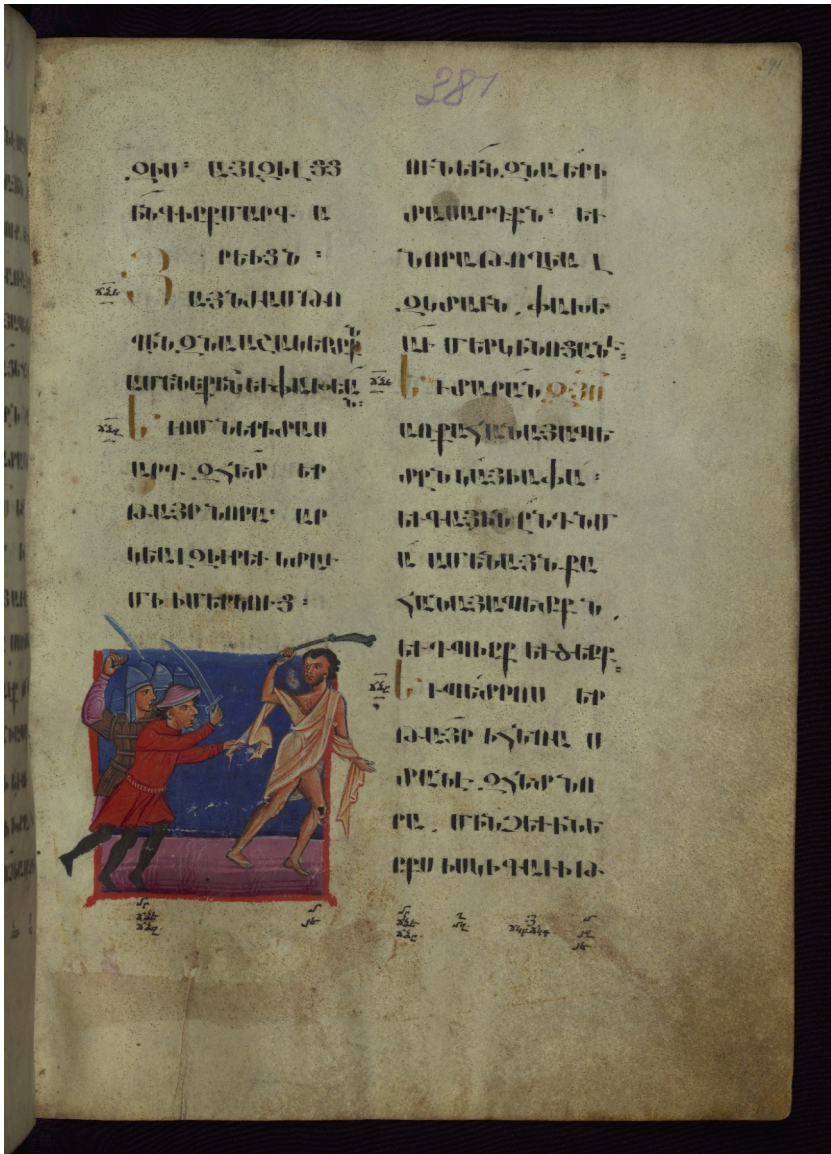 ԶԻՍ։ ԱՅԼ ԶԻ ԼՑՑ
ԻՆ ԳԻՐՔ ՄԱՐԳ Ա
ՐԷԻՑՆ։
ՅԱՅՆԺԱՄ ԹՈ
ՂԻՆ ԶՆԱ ԱՇԱԿԵՐՏՔՆ
ԱՄԵՆԵՔԻՆ ԵՒ ՓԱԽԵԱՆ։
ԵՒ ՈՄՆ ԵՐԻՏԱՍ
ԱՐԴ ԶՀԵՏ ԵՐ
ԹԱՅՐ ՆՈՐԱ՝ ԱՐ
ԿԵԱԼ ԶԻՒՐԵՒ ԿՏԱՒ
ՄԻ Ի ՄԵՐԿՈՒՑ։
ՈՒՆԷԻՆ ԶՆԱ ԵՐԻ
ՏԱՍԱՐԴՔՆ։ ԵՒ
ՆՈՐԱ ԹՈՂԵԱԼ
ԶԿՏԱՒՆ, ՓԱԽԵ
ԱՒ ՄԵՐԿ Ի ՆՈՑԱՆԷ։
ԵՒ ՏԱՐԱՆ ԶՅՍ
ԱՌ ՔԱՀԱՆԱՅԱՊԵ
ՏՆ ԿԱՅԻԱՓԱ։
ԵՒ ԳԱՅԻՆ ԸՆԴ ՆՄ
Ա ԱՄԵՆԱՅՆ ՔԱ
ՀԱՆԱՅԱՊԵՏՔՆ,
ԵՒ ԴՊԻՐՔ ԵՒ ԾԵՐՔ։
ԵՒ ՊԵՏՐՈՍ ԵՐ
ԹԱՅՐ Ի ՀԵՌԱՍ
ՏԱՆԷ ԶՀԵՏ ՆՈ
ՐԱ, ՄԻՆՉԵՒ Ի ՆԵ
ՐՔՍ Ի ԳԱՒԻԹ
381